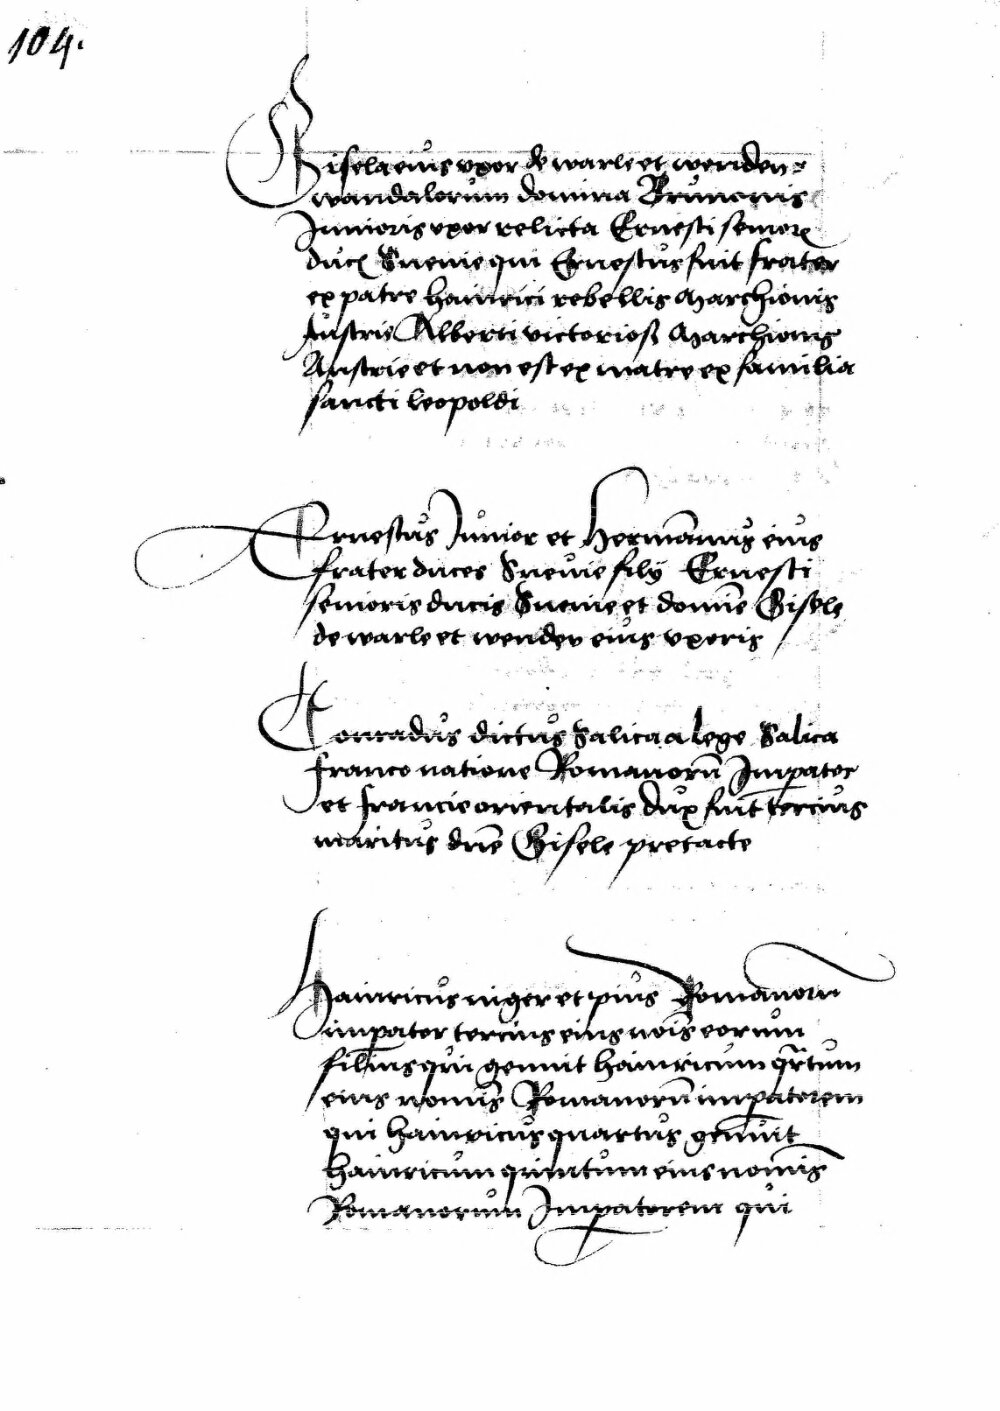 104.
Gisela eius uxor de warle et wenden
wandalorum domina Brunonis
Junioris uxor relicta Ernesti senior
duc Sueuie qui Ernestus fuit frater
ex patre hainrici rebellis Marchionis
Austrie Alberti victoriosi Marchionis
Austrie et non est ex matre ex familia
sancti leopoldi
Ernestus Junior et Hermanus eius
frater duces Sueuie filij Ernesti
senioris ducis Sueuie et domne Gisele
de warle et wenden eius uxoris
Conradus dictus Salica a lege Salica
franco natione Romanoru Impator
et francie orientalis dux fuit tercius
maritus dne Gisele pretacte
Hainricus niger et pius Romanoru
impator tercius eius nois eorum
filius qui genuit hainricum qrtum
eius nomis Romanoru impatorem
qui hainricus quartus genuit
hainricum quintum eius nomis
Romanorum Impatorem qui